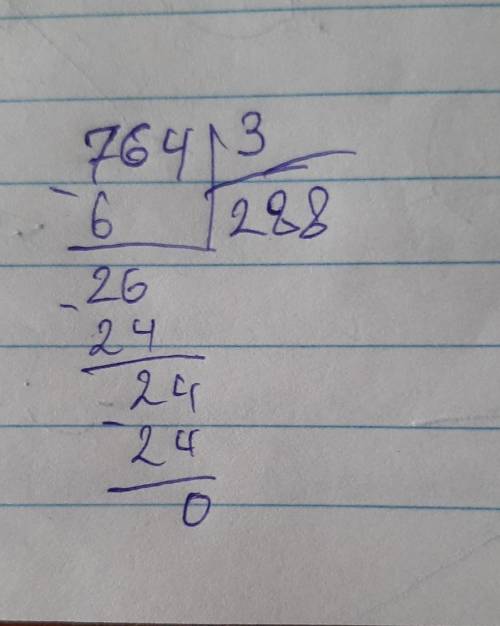 764 3
- 6 288
26
- 24
24
- 24
0